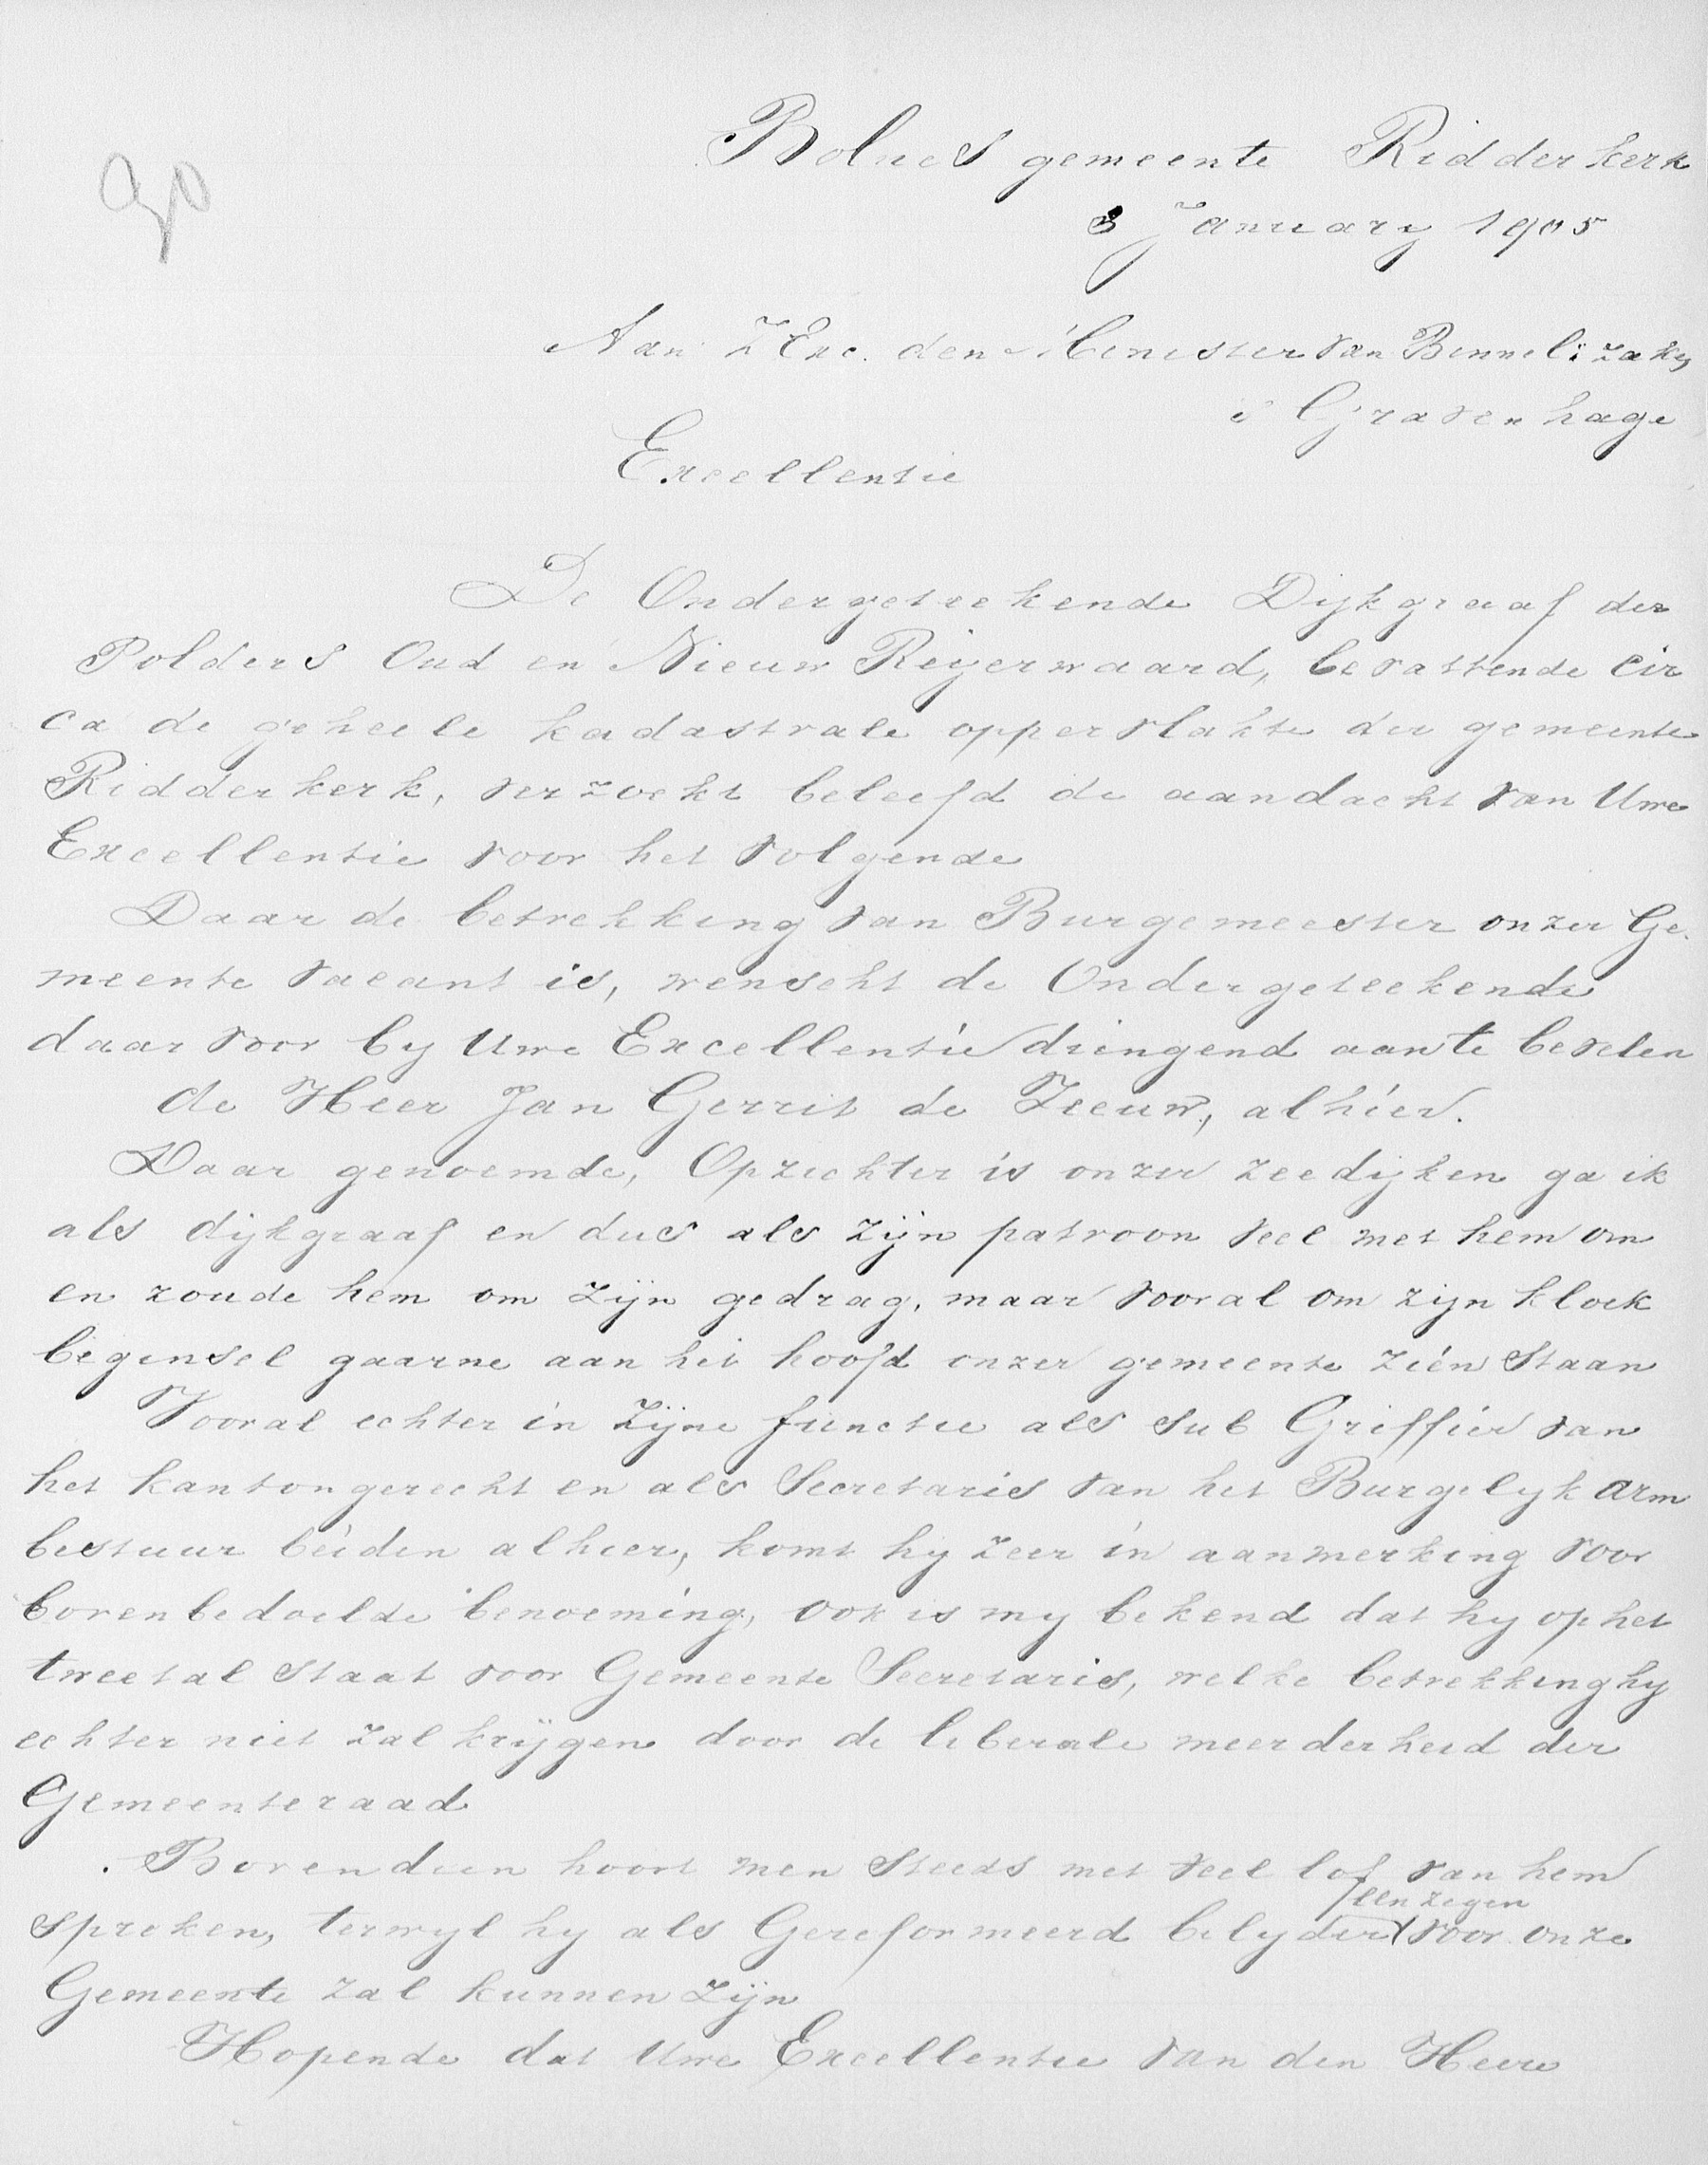 90
Bolnes gemeente Ridderkerk
3 January 1905
Aan ZExc. den Minister van Binnel: zaken
s Gravenhage
Excellentie
De Ondergeteekende Dijkgraaf der
Polders Oud en Nieuw Reijerwaard, bevattende cir
ca de geheele kadastrale oppervlakte der gemeente
Ridderkerk, verzoekt beleefd de aandacht van Uwe
Excellentie voor het volgende
Daar de betrekking van Burgemeester onzer Ge-
meente vacant is, wenscht de Ondergeteekende
daar voor by Uwe Excellentie dringend aan te bevelen
de Heer Jan Gerrit de Zeeuw, alhier.
Daar genoemde, Opzichter is onzer zeedijken ga ik
als dijkgraaf en dus als zijn patroon veel met hem om
en zoude hem om zijn gedrag, maar vooral om zijn kloek
beginsel gaarne aan het hoofd onzer gemeente zien staan
Vooral echter in zijne functie als sub Griffier van
het kantongerecht en als Secretaris van het Burgelyk arm
bestuur beiden alhier, komt hy zeer in aanmerking voor
bovenbedoelde benoeming, ook is my bekend dat hy op het
tweetal staat voor Gemeente Secretaris, welke betrekking hy
echter niet zal krijgen door de liberale meerderheid der
Gemeenteraad
. Bovendien hoort men steeds met veel lof van hem
een zegen
spreken, terwyl hy als Gereformeerd belyder voor onze
Gemeente zal kunnen zijn
Hopende dat Uwe Excellentie van den Heere